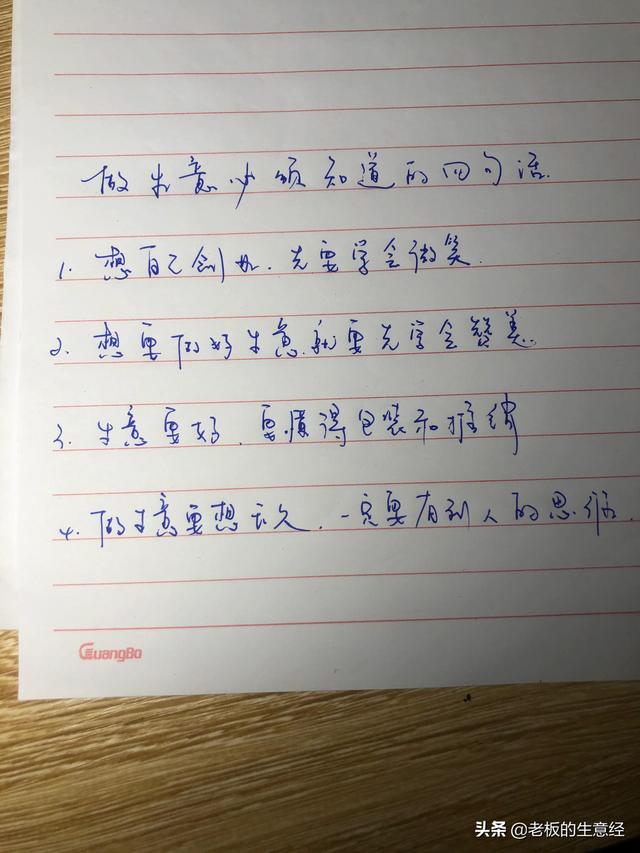 做生意必须知道的四句话.
1. 想自己创业. 先要学会微笑.
2. 想要做好生意. 就要先学会赞美.
3. 生意要好. 要懂得包装和推销
4. 做生意要想长久. 一定要有利人的思维.
GuangBo
头条 @老板的生意经